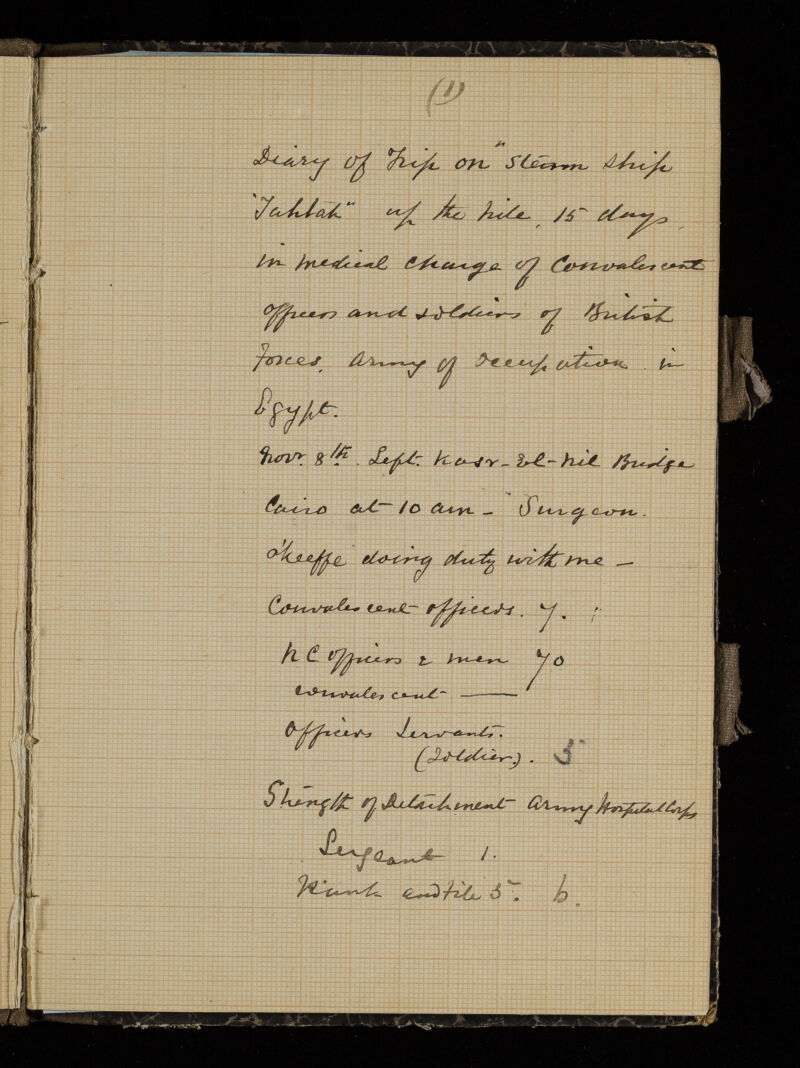 (1)
Diary of Trip on "Steam ship
"Tahtah" up the Nile, 15 days,
in medical charge of Convalescent
officers and soldiers of British
Forces, Army of occupation in
Egypt.
Novr. 8th. Left. Kasr-El-Nil Bridge
Cairo at 10 am - Surgeon.
O'Keeffe doing duty with me -
Convalescent officers. 7.
N C officers & men 70
convalescent —
Officers Servants.
(Soldier). 5
Strength of Detachment Army Hospital Corps
Sergeant 1.
Rank and File 5. 6.